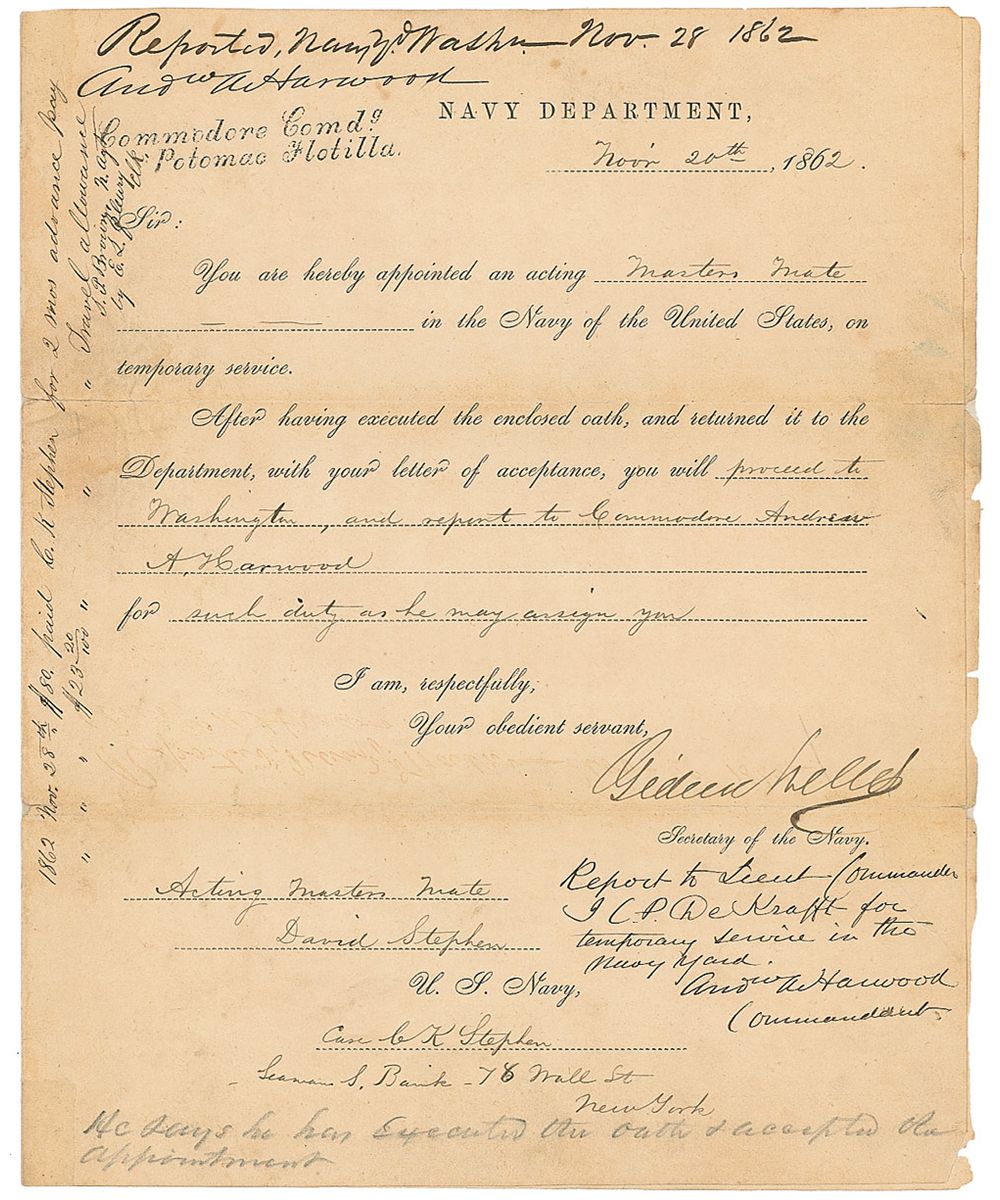 Reported, Navy Yd Washn Nov. 28 1862
Andw A Harwood
Commodore Comdg
Potomac Flotilla.
NAVY DEPARTMENT,
Nov'r 20th, 1862.
Sir:
You are hereby appointed an acting Masters Mate
in the Navy of the United States, on
temporary service.
After having executed the enclosed oath, and returned it to the
Department, with your letter of acceptance, you will proceed to
Washington, and report to Commodore Andrew
A. Harwood
for such duty as he may assign you
I am, respectfully,
Your obedient servant,
Gideon Welles
Secretary of the Navy.
Acting Masters Mate
David Stephen
U. S. Navy,
Care C K Stephen
Seamans S. Bank - 78 Wall St
New York
Report to Lieut Commander
J C P De Krafft for
temporary service in the
Navy Yard.
Andw A Harwood
Commandant.
He says he has Executed the oath & accepted the
appointment
1862 Nov. 28th $80. paid C. K Stephen for 2 mos advance pay
" " " $23 20/100 " " " Travel allowance
S. P. Brown N. Agt
by E. L. Clk